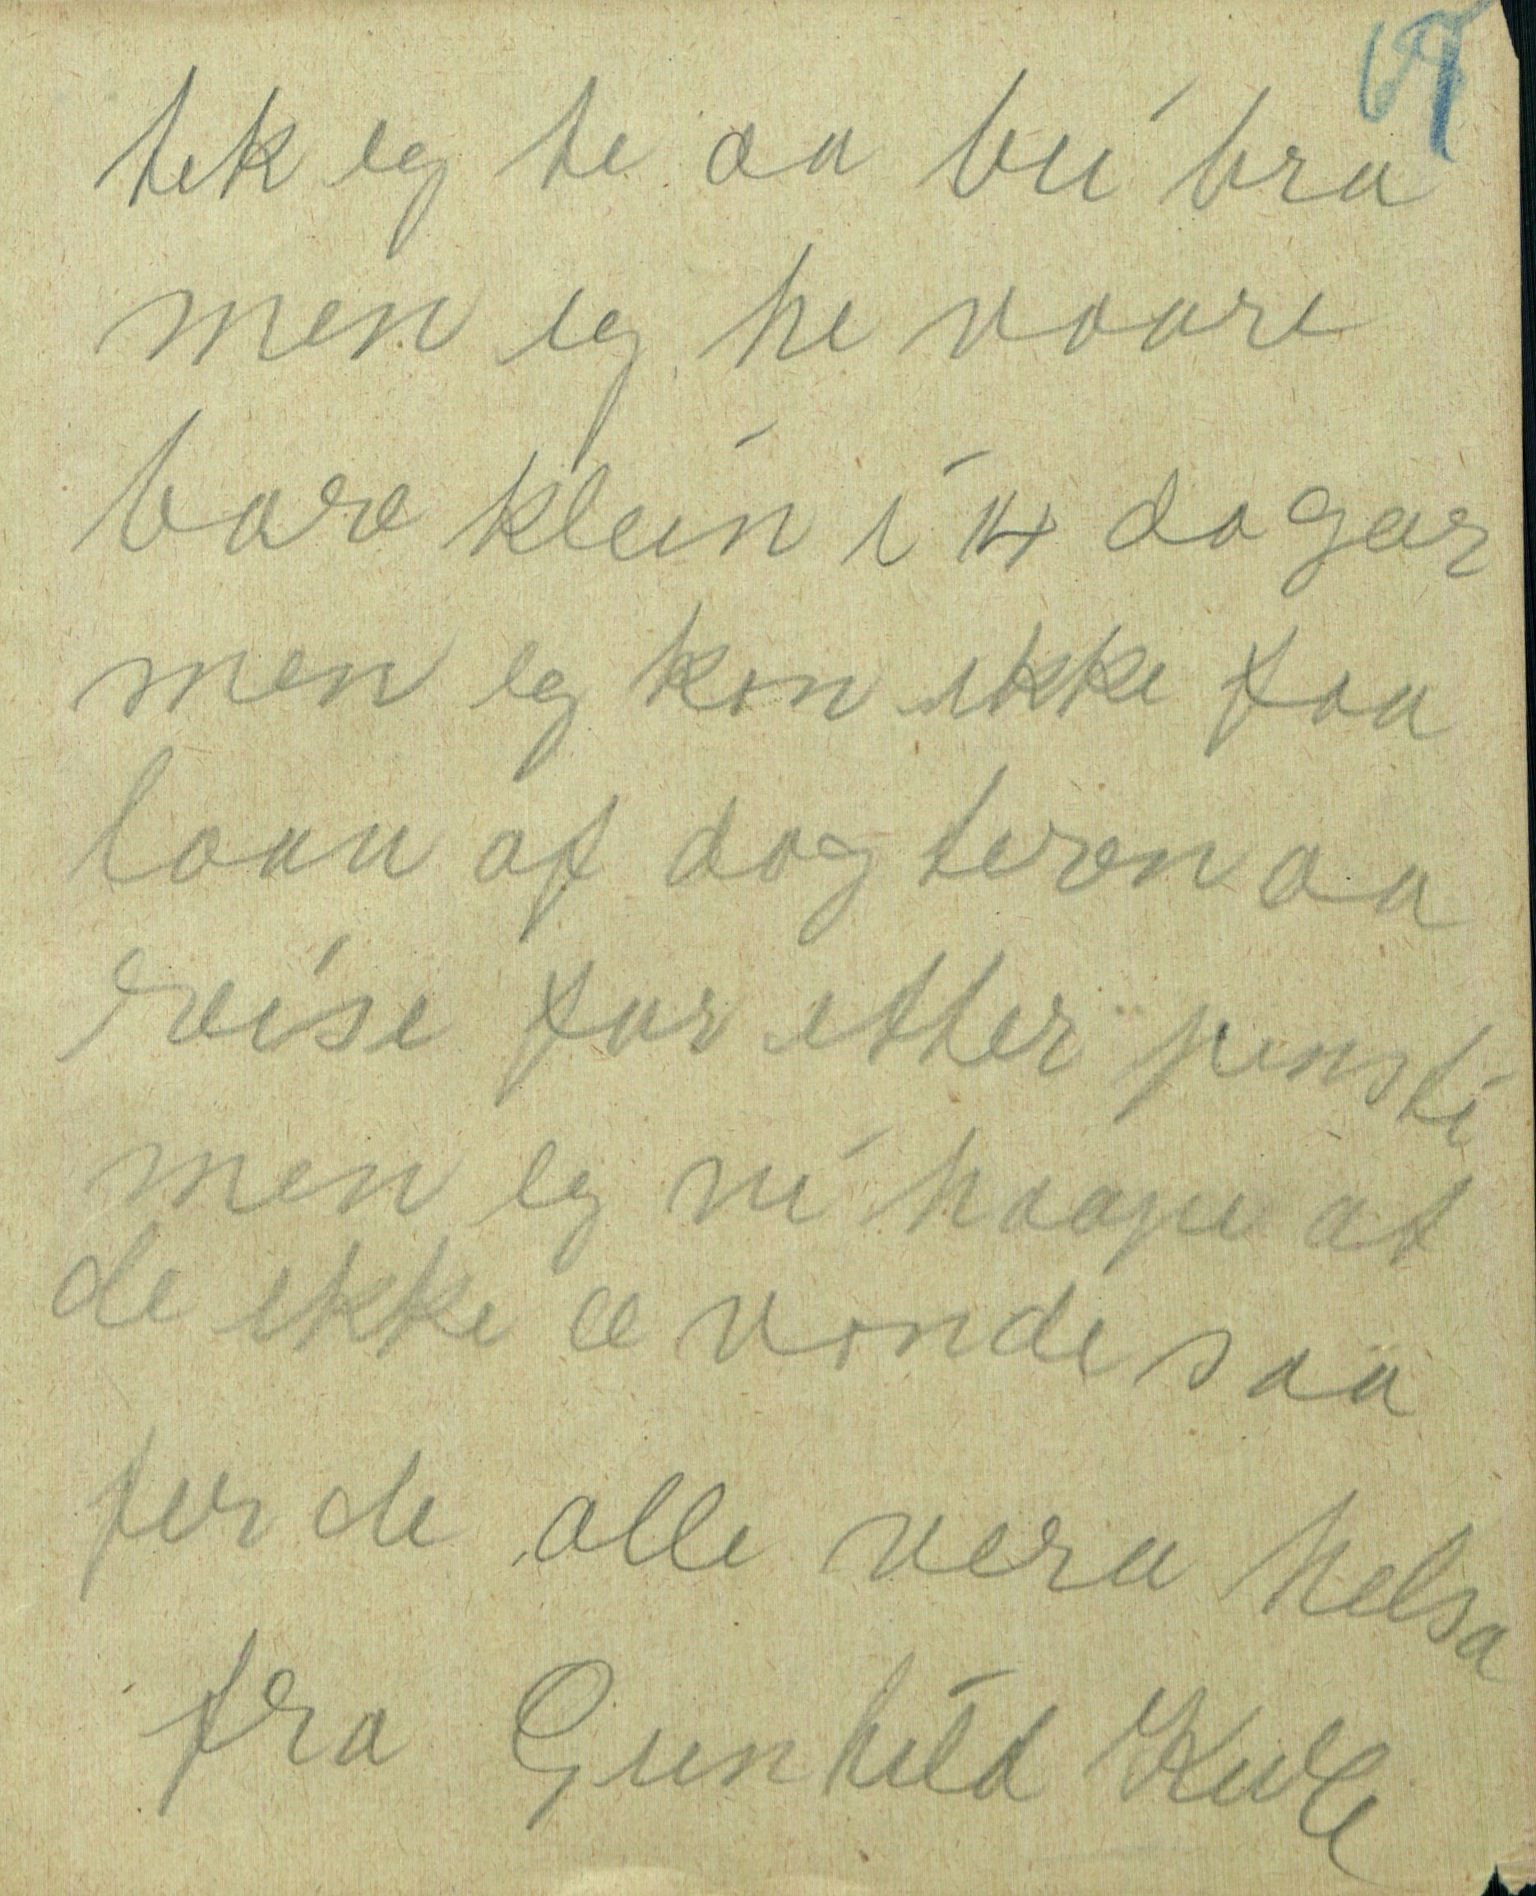 tek eg te aa bli bra
men eg he vaare
bare klein i 14 dagar
men eg kan ikke faa
laav af dagteren aa
reise før etter pinsti
men eg vi haape at
de ikke æ vonde saa
fer de alle vera helsa
fra Gunhild